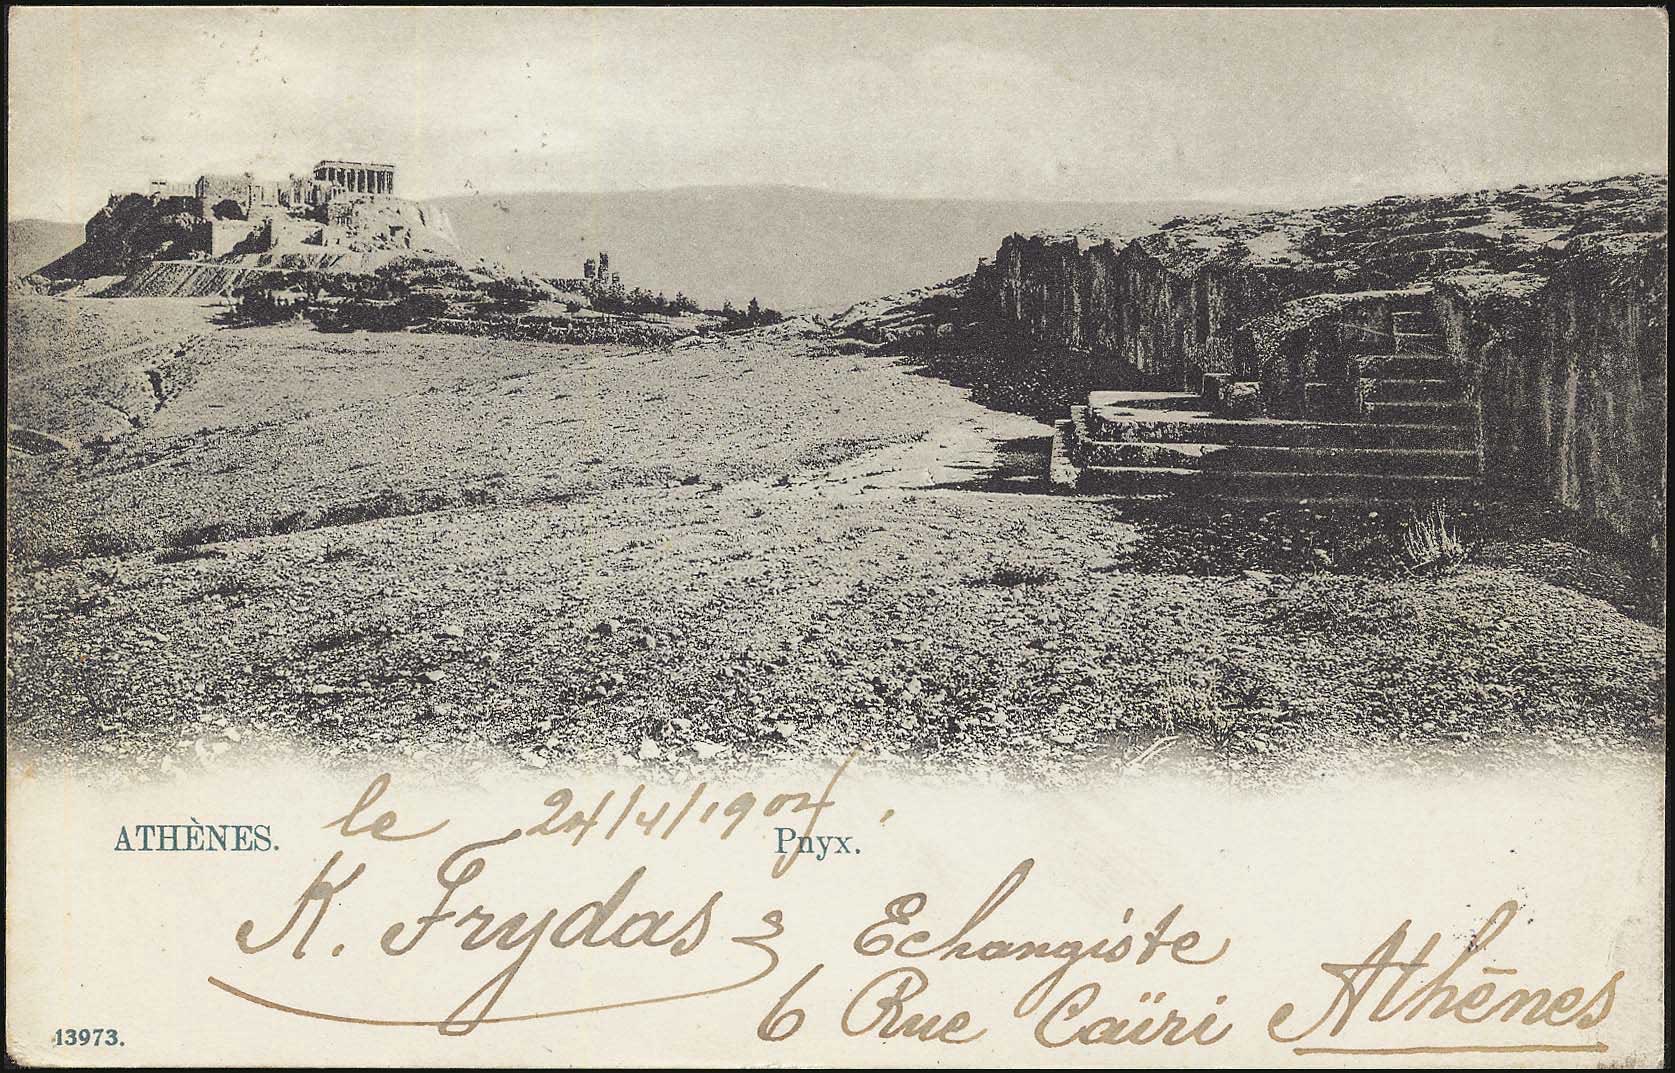 le 24/4/1904.
ATHÈNES. Pnyx.
K. Frydas Echangiste
6 Rue Caïri Athēnes
13973.